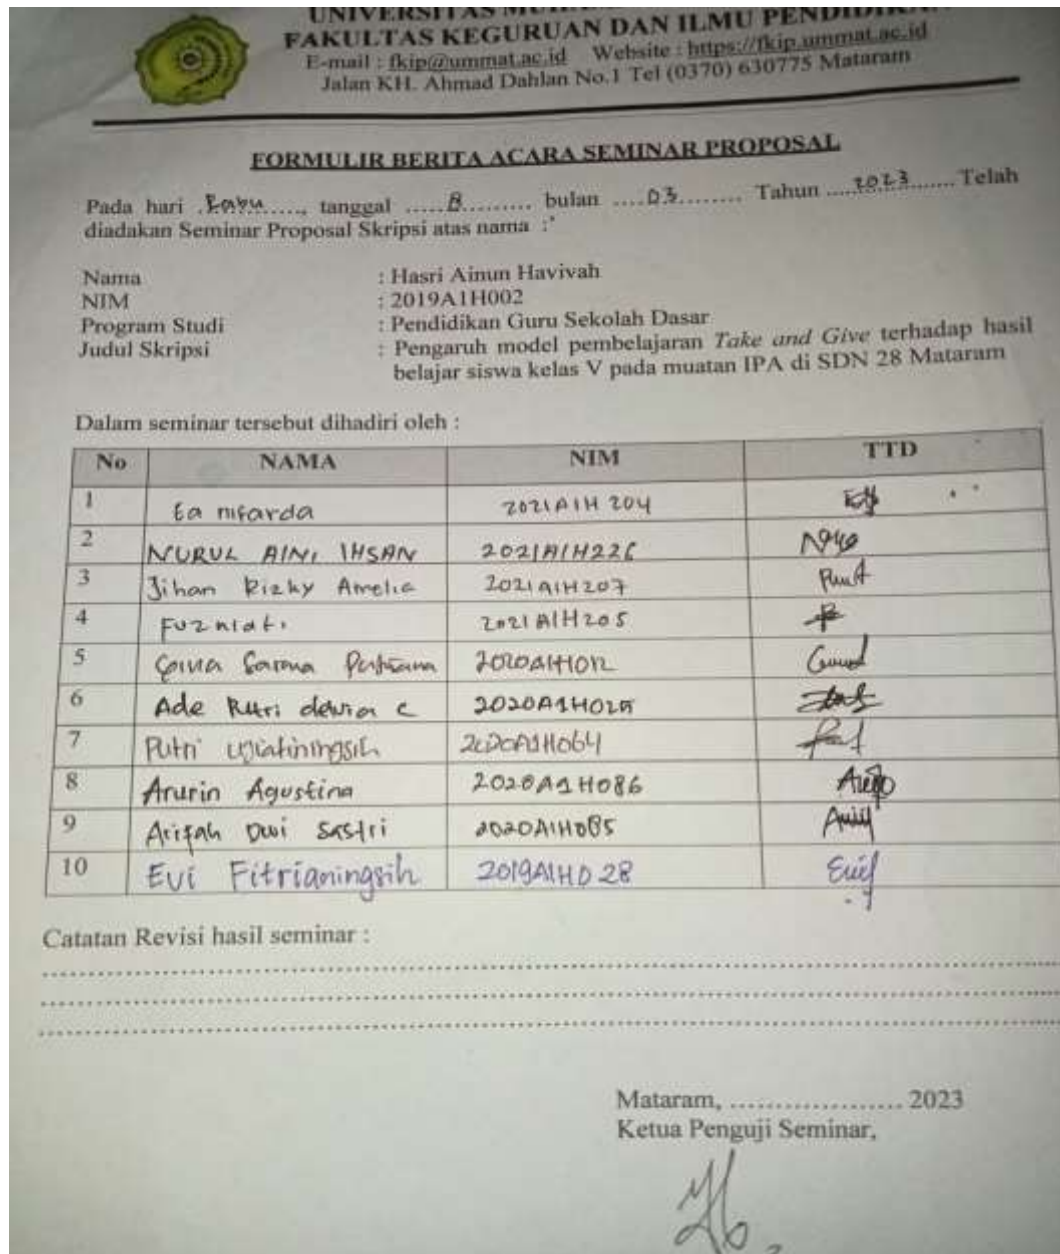 UNIVERSITAS
FAKULTAS KEGURUAN DAN ILMU PENDIDIKAN
E-mail : fkip@ummat.ac.id Website : https://fkip.ummat.ac.id
Jalan KH. Ahmad Dahlan No.1 Tel (0370) 630775 Mataram
FORMULIR BERITA ACARA SEMINAR PROPOSAL
Pada hari .Rabu......, tanggal .....8......... bulan ....03........ Tahun .....2023...... Telah
diadakan Seminar Proposal Skripsi atas nama :
Nama : Hasri Ainun Havivah
NIM : 2019A1H002
Program Studi : Pendidikan Guru Sekolah Dasar
Judul Skripsi : Pengaruh model pembelajaran Take and Give terhadap hasil
belajar siswa kelas V pada muatan IPA di SDN 28 Mataram
Dalam seminar tersebut dihadiri oleh :
No NAMA NIM TTD
1 Ea nifarda 2021A1H 204
2 NURUL AINI IHSAN 2021A1H226
3 Jihan Rizky Amelia 2021A1H207
4 Fuzniati 2021A1H205
5 2020A1H012
6 Ade Putri dewia c
7 Putri 2020A1H064
8 Arurin Agustina 2020A1H086
9 Arifah Dwi Sastri 2020A1H085
10 Evi Fitrianingsih 2019A1H028
Catatan Revisi hasil seminar :
Mataram, .................... 2023
Ketua Penguji Seminar,